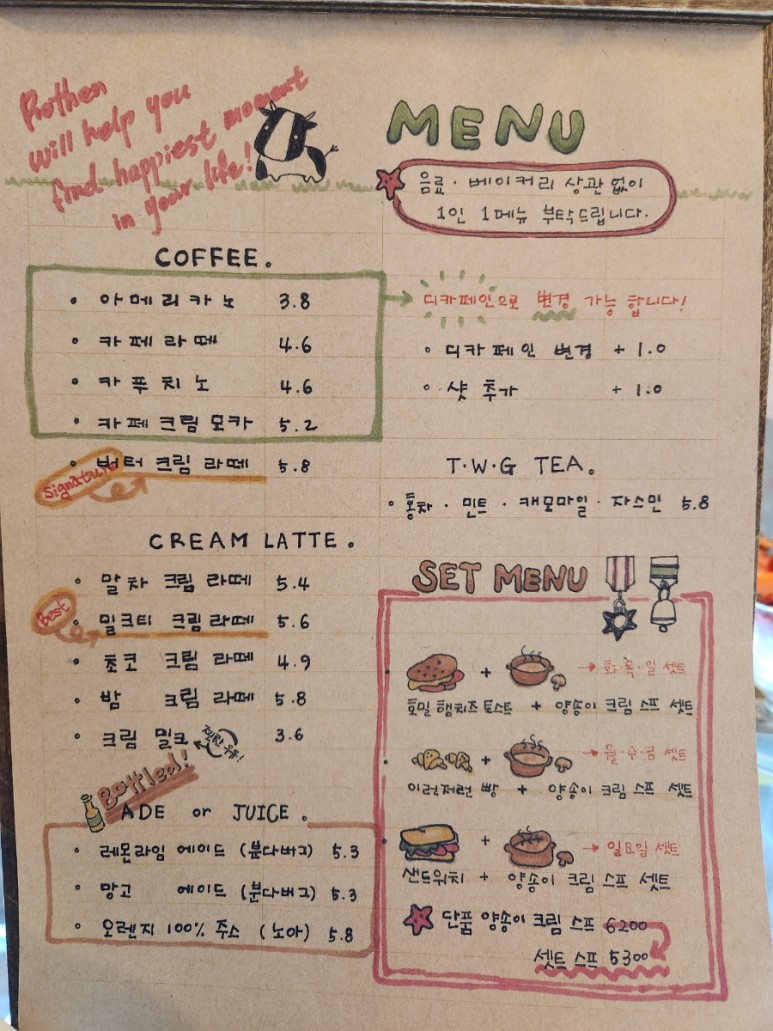 Rothen
will help you
find happiest moment
in your life!
MENU
음료·베이커리 상관 없이
1인 1메뉴 부탁드립니다.
COFFEE.
• 아메리카노 3.8
• 카페라떼 4.6
• 카푸치노 4.6
• 카페크림모카 5.2
• 버터 크림 라떼 5.8
Signature
디카페인으로 변경 가능 합니다!
• 디카페인 변경 +1.0
• 샷 추가 +1.0
T.W.G TEA.
• 홍차 · 민트 · 캐모마일 · 자스민 5.8
CREAM LATTE.
• 말차 크림 라떼 5.4
Best
• 밀크티 크림 라떼 5.6
• 초코 크림 라떼 4.9
• 밤 크림 라떼 5.8
• 크림 밀크 3.6
Bottled!
ADE or JUICE.
• 레몬라임 에이드 (분다버그) 5.3
• 망고 에이드 (분다버그) 5.3
• 오렌지 100% 주스 (노아) 5.8
SET MENU
+ → 화·목·일 셋트
호밀 햄치즈 토스트 + 양송이 크림 스프 셋트
+ → 월·수·금 셋트
이런저런 빵 + 양송이 크림 스프 셋트
+ → 일요일 셋트
샌드위치 + 양송이 크림 스프 셋트
단품 양송이 크림 스프 6200
셋트 스프 5300